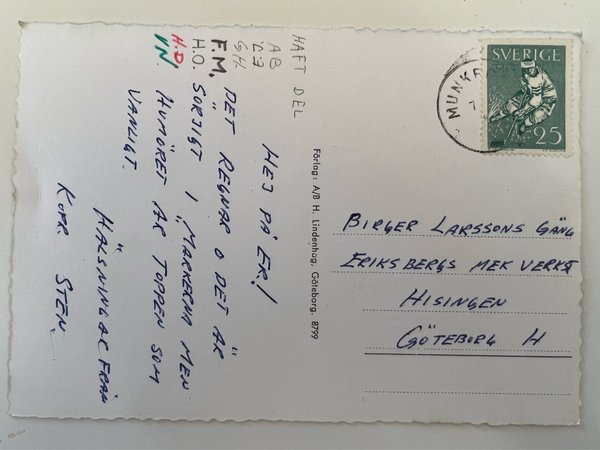 HAFT DEL
AB
GH.
F.M.
H.O.
H.D.
VN.
HEJ PÅ ER!
DET REGNAR O DET ÄR
SORJIGT I MÄRKERNA MEN
HUMÖRET ÄR TOPPEN SOM
VANLIGT.
HÄLSNINGAR FRÅN
KORP. STEN.
Förlag: A/B H. Lindenhag, Göteborg. 8799
SVERIGE
25
BIRGER LARSSONS GÄNG
ERIKSBERGS MEK VERKST
HISINGEN
GÖTEBORG H